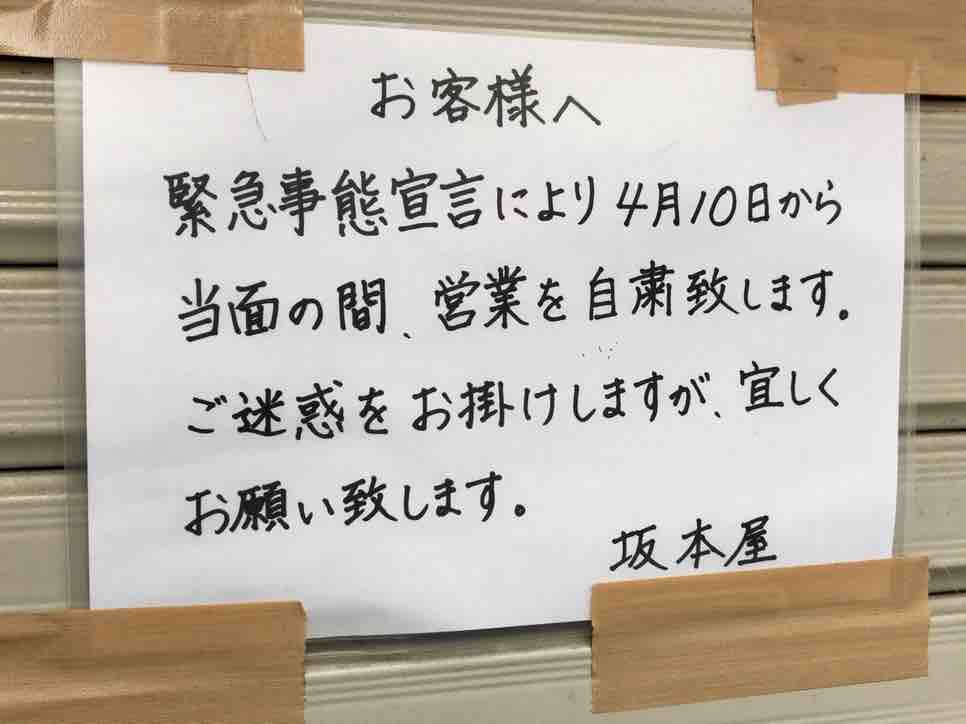 お客様へ
緊急事態宣言により4月10日から
当面の間、営業を自粛致します。
ご迷惑をお掛けしますが、宜しく
お願い致します。
坂本屋